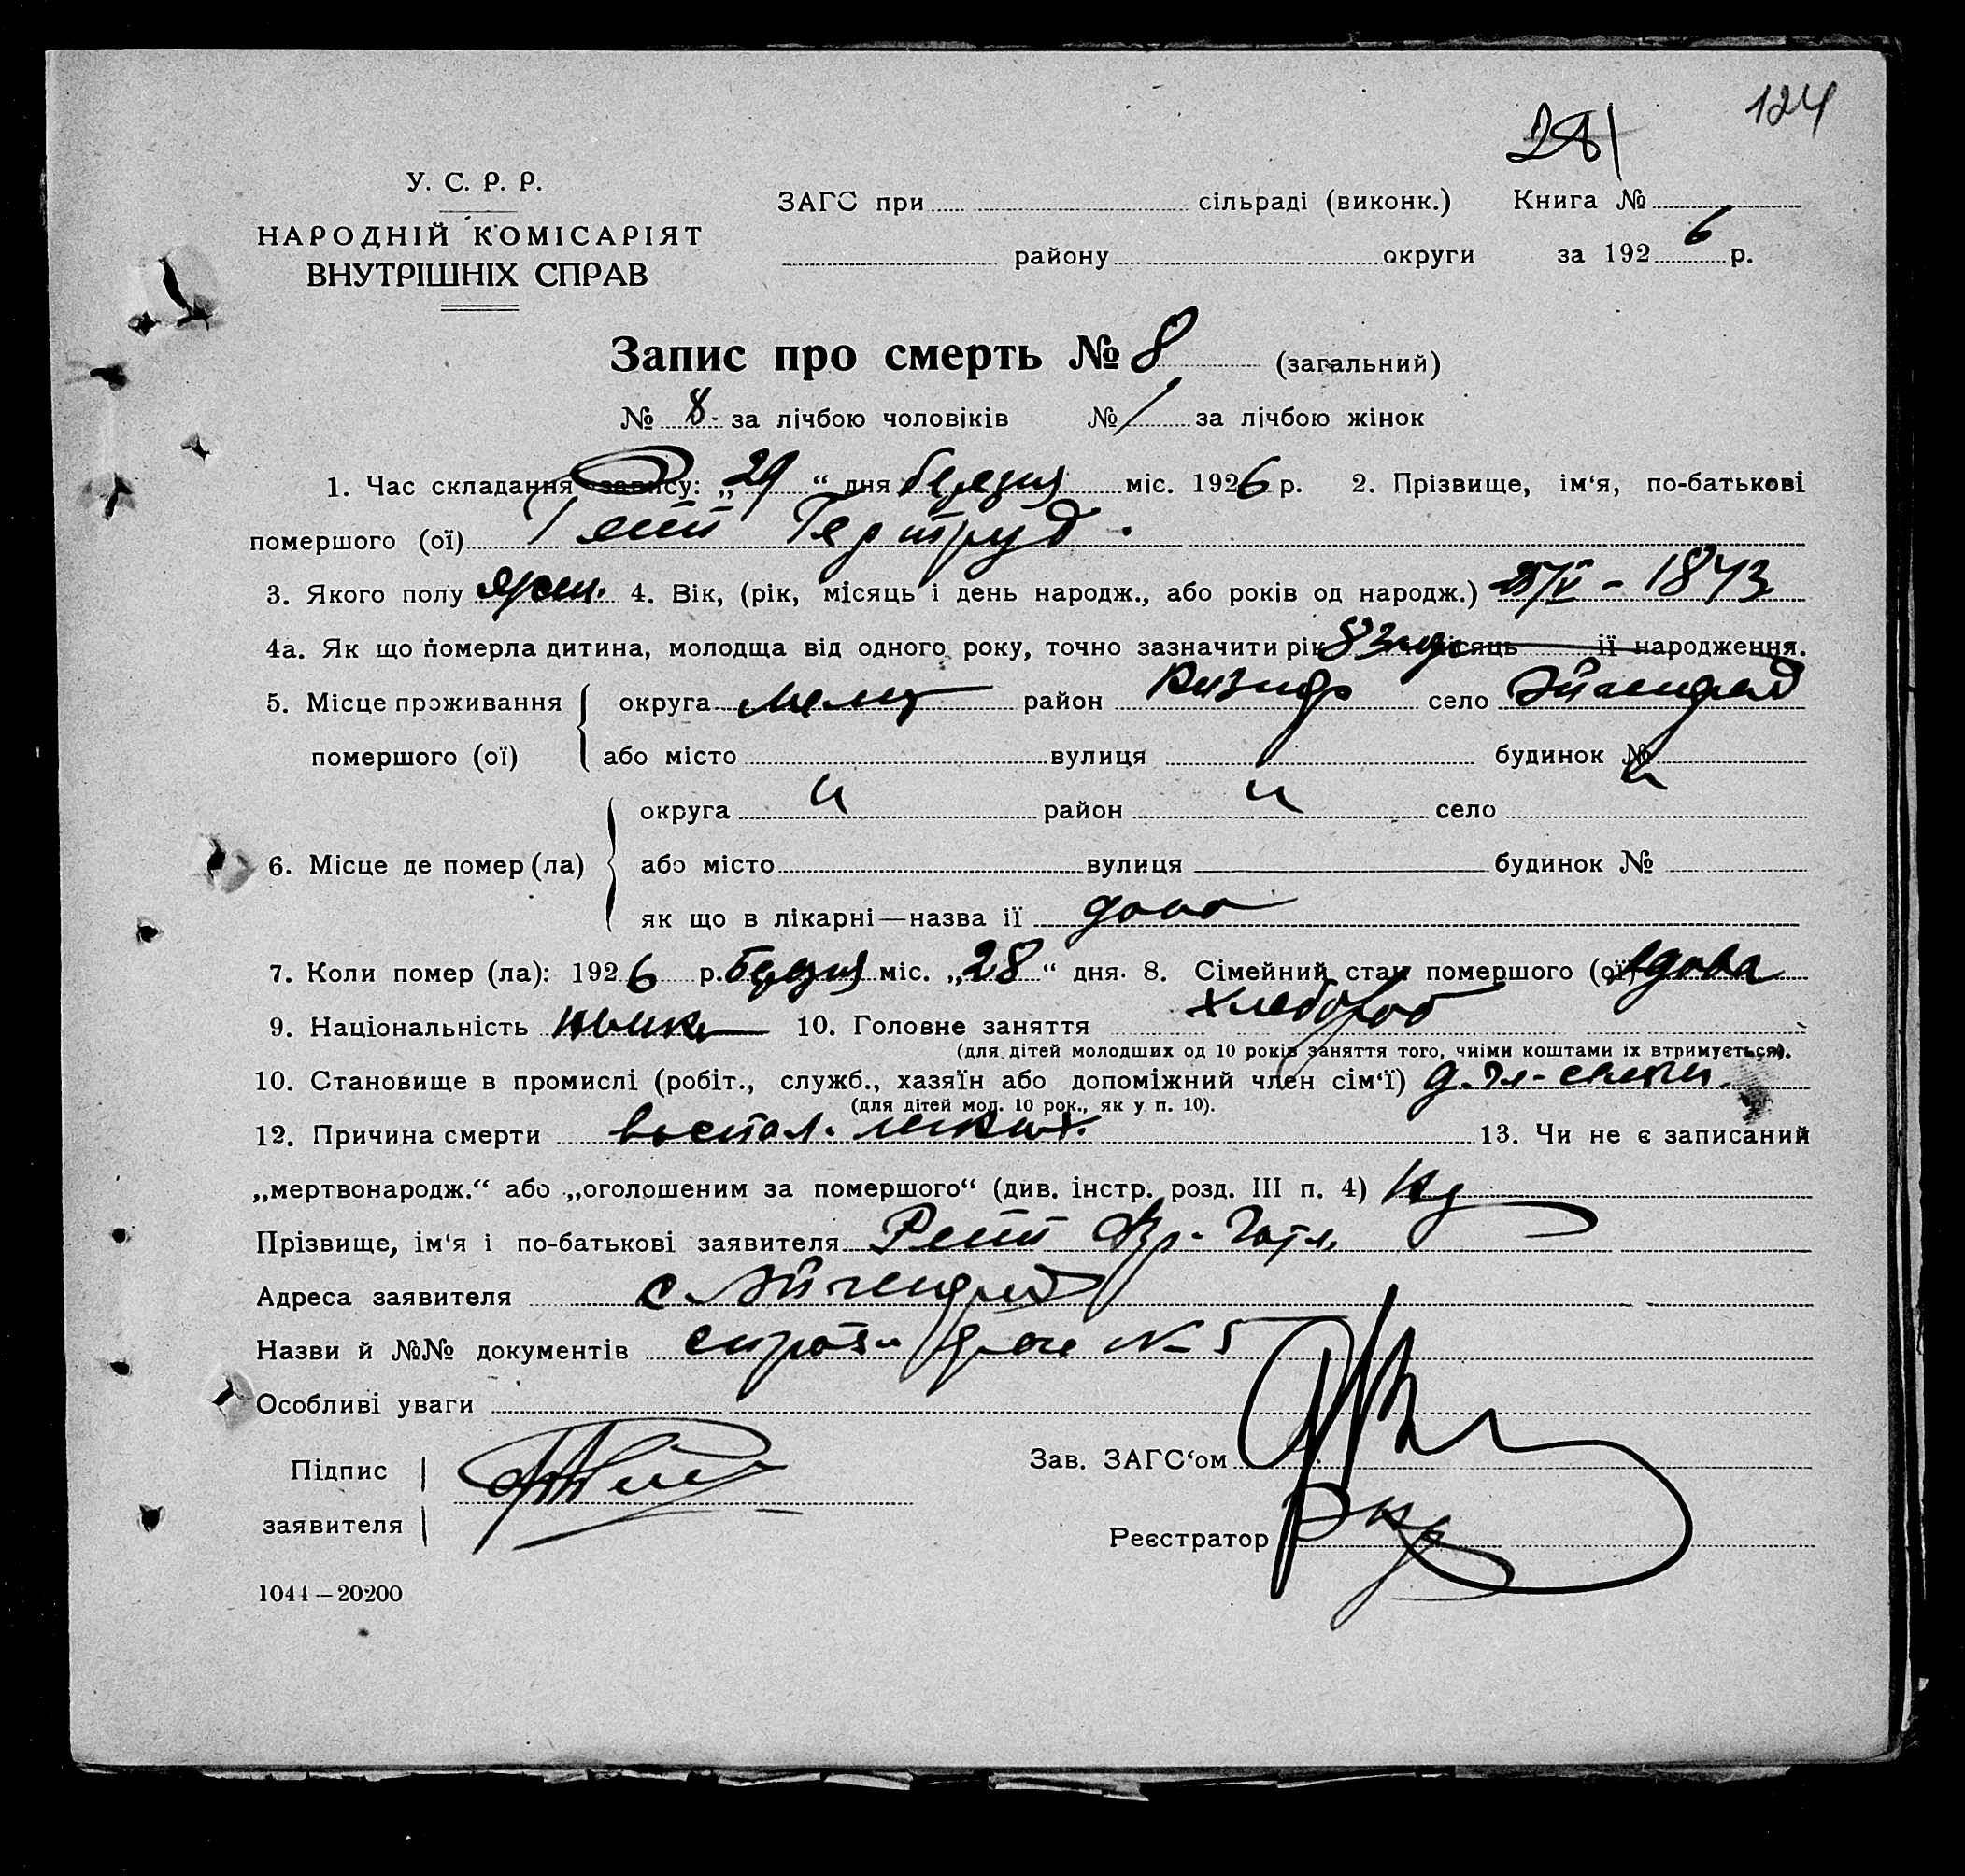 124
281
У. С. Р. Р.
НАРОДНІЙ КОМІСАРІЯТ
ВНУТРІШНІХ СПРАВ
ЗАГС при сільраді (виконк.) Книга №
району округи за 1926 р.
Запис про смерть № 8 (загальний)
№ 8 за лічбою чоловіків № / за лічбою жінок
1. Час складання запису: „29“ дня березня міс. 1926 р. 2. Прізвище, ім‘я, по-батькові
помершого (ої) Гертруд.
3. Якого полу жен. 4. Вік, (рік, місяць і день народж., або років од народж.) - 1843
4а. Як що померла дитина, молодща від одного року, точно зазначити рік 83 місяць її народження.
5. Місце проживання помершого (ої) округа Мелит район село
або місто вулиця будинок №
6. Місце де помер (ла) округа " район " село "
або місто вулиця будинок №
як що в лікарні—назва її дома
7. Коли помер (ла): 1926 р. березня міс. „28“ дня. 8. Сімейний стан помершого (ої) вдова
9. Національність немка 10. Головне заняття хлебороб
(для дітей молодших од 10 років заняття того, чиїми коштами їх втримується).
10. Становище в промислі (робіт., служб., хазяїн або допоміжний член сім‘ї) д. чл. семьи
(для дітей мол. 10 рок., як у п. 10).
12. Причина смерти воспал. легких. 13. Чи не є записаний
„мертвонародж.“ або „оголошеним за помершого“ (див. інстр. розд. III п. 4)
Прізвище, ім‘я і по-батькові заявителя
Адреса заявителя с.
Назви й №№ документів № 5
Особливі уваги
Підпис заявителя
Зав. ЗАГС‘ом
Реєстратор
1044—20200